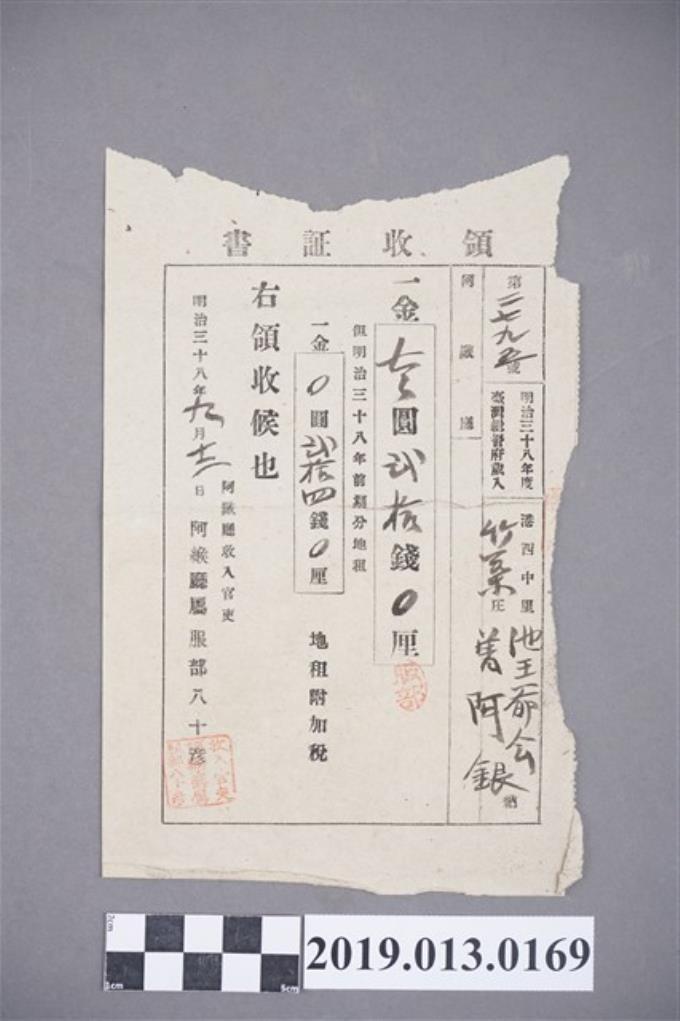 領收証書
第二七九五號
明治三十八年度
臺灣總督府歲入
港西中里
竹葉庄
池王爺会
曾阿銀 納
阿緱廳
一金 圓貳拾錢0厘
但明治三十八年前期分地租
一金0圓貳拾四錢0厘
地租附加稅
右領收候也
明治三十八年九月十二日
阿緱廳收入官吏
阿緱廳屬服部八十彦
服部
2cm
1cm
5cm
2019.013.0169